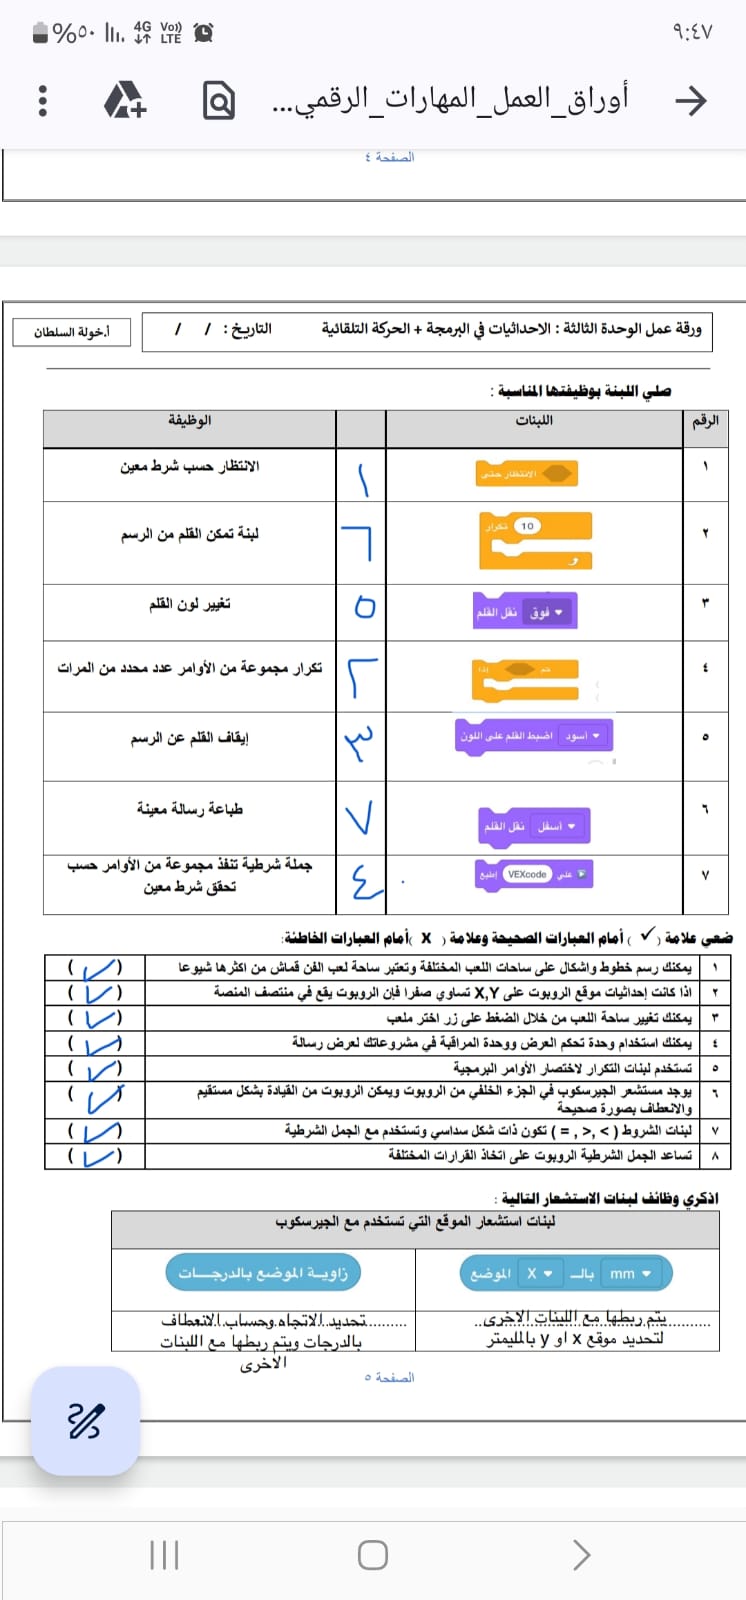 ٩:٤٧
٪٥٠ 4G Vo)) LTE
أوراق_العمل_المهارات_الرقمي...
الصفحة ٤
ورقة عمل الوحدة الثالثة : الاحداثيات في البرمجة + الحركة التلقائية التاريخ : / /
أ.خولة السلطان
صلي اللبنة بوظيفتها المناسبة :
الرقم اللبنات الوظيفة
١ الانتظار حتى ١ الانتظار حسب شرط معين
٢ تكرار 10 ٦ لبنة تمكن القلم من الرسم
٣ نقل القلم فوق ٥ تغيير لون القلم
٤ إذا ثم ٢ تكرار مجموعة من الأوامر عدد محدد من المرات
٥ اضبط القلم على اللون أسود ٣ إيقاف القلم عن الرسم
٦ نقل القلم أسفل ٧ طباعة رسالة معينة
٧ إطبع VEXcode على ٤ جملة شرطية تنفذ مجموعة من الأوامر حسب
تحقق شرط معين
ضعي علامة ( ✓ ) أمام العبارات الصحيحة وعلامة ( X ) أمام العبارات الخاطئة:
١ يمكنك رسم خطوط واشكال على ساحات اللعب المختلفة وتعتبر ساحة لعب الفن قماش من اكثرها شيوعا (✓)
٢ اذا كانت إحداثيات موقع الروبوت على X,Y تساوي صفرا فإن الروبوت يقع في منتصف المنصة (✓)
٣ يمكنك تغيير ساحة اللعب من خلال الضغط على زر اختر ملعب (✓)
٤ يمكنك استخدام وحدة تحكم العرض ووحدة المراقبة في مشروعاتك لعرض رسالة (✓)
٥ تستخدم لبنات التكرار لاختصار الأوامر البرمجية (✓)
٦ يوجد مستشعر الجيرسكوب في الجزء الخلفي من الروبوت ويمكن الروبوت من القيادة بشكل مستقيم (✓)
والانعطاف بصورة صحيحة
٧ لبنات الشروط ( > ,< , = ) تكون ذات شكل سداسي وتستخدم مع الجمل الشرطية (✓)
٨ تساعد الجمل الشرطية الروبوت على اتخاذ القرارات المختلفة (✓)
اذكري وظائف لبنات الاستشعار التالية :
لبنات استشعار الموقع التي تستخدم مع الجيرسكوب
الموضع X بالـ mm
زاوية الموضع بالدرجات
يتم ربطها مع اللبنات الاخرى
لتحديد موقع x او y بالمليمتر
تحديد الاتجاه وحساب الانعطاف
بالدرجات ويتم ربطها مع اللبنات
الاخرى
الصفحة ٥